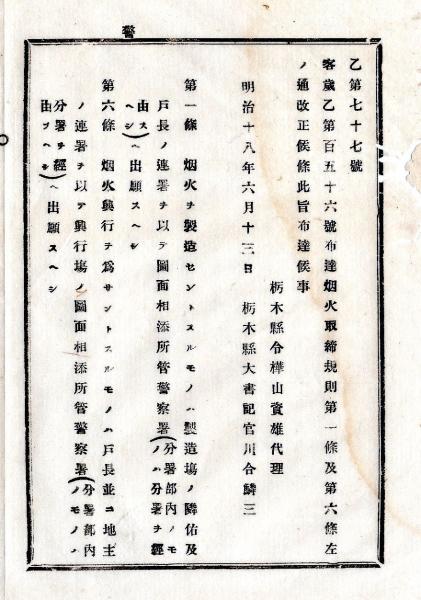 警
乙第七十七號
客歲乙第百五十六號布達烟火取締規則第一條及第六條左
ノ通改正候條此旨布達候事
栃木縣令樺山資雄代理
明治十八年六月十三日　栃木縣大書記官川合鱗三
第一條　烟火ヲ製造セントスルモノハ製造塲ノ隣佑及
戸長ノ連署ヲ以テ圖面相添所管警察署（分署部內ノモノハ分署ヲ經
由スヘシ）ヘ出願スヘシ
第六條　烟火興行ヲ爲サントスルモノハ戸長並ニ地主
ノ連署ヲ以テ興行塲ノ圖面相添所管警察署（分署部內ノモノハ
分署ヲ經由スヘシ）ヘ出願スヘシ